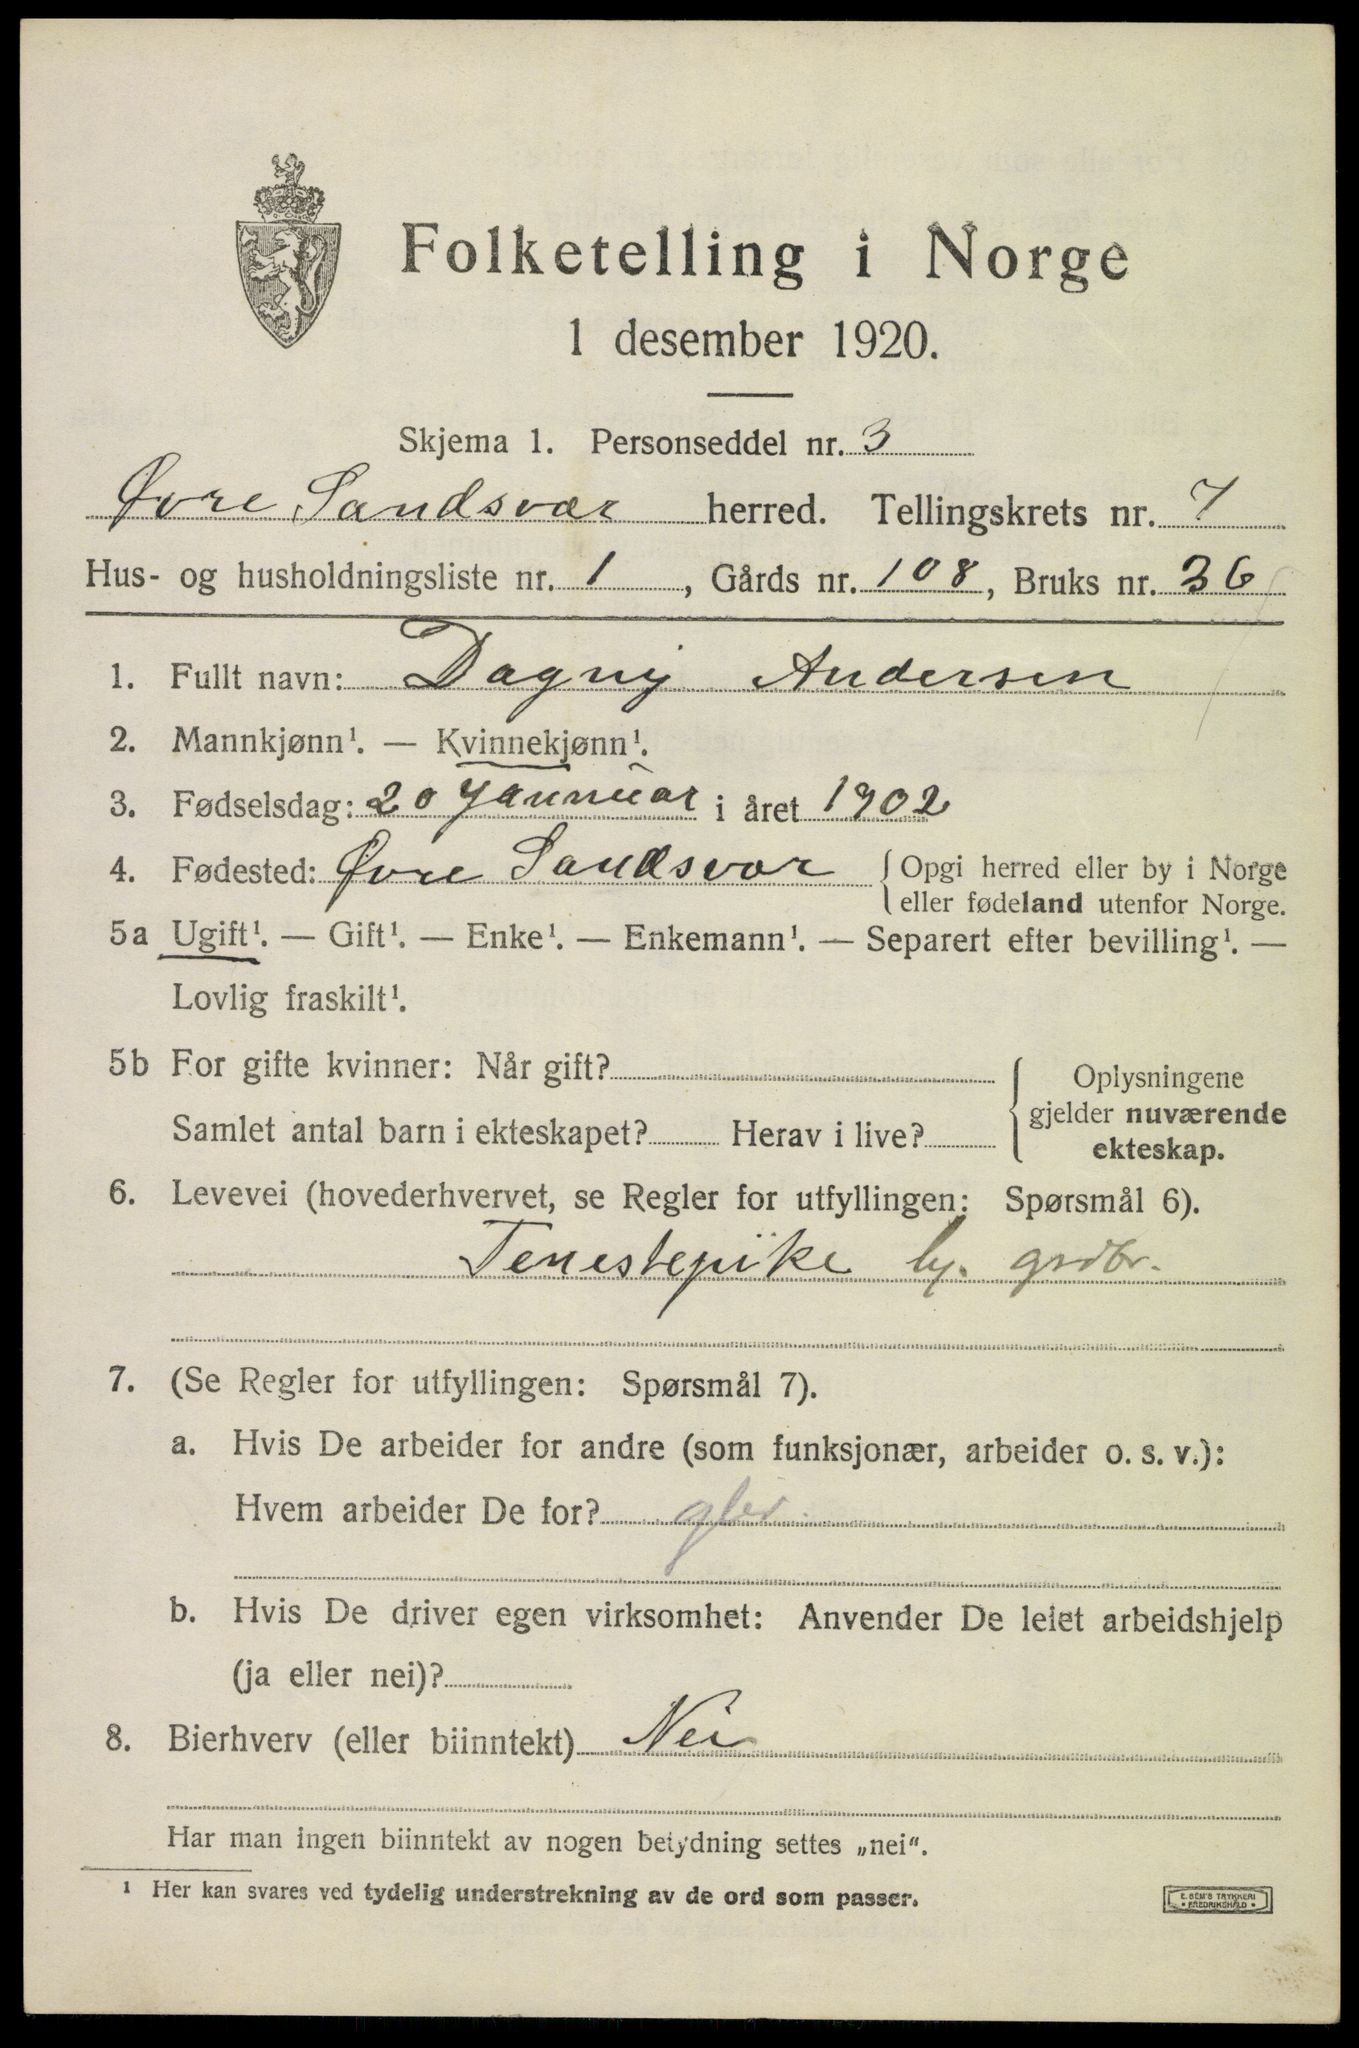 Folketelling i Norge
1 desember 1920.
Skjema 1. Personseddel nr. 3
Øvre Sandsvær herred. Tellingskrets nr. 7
Hus- og husholdningsliste nr. 1, Gårds nr. 108, Bruks nr. 36
1. Fullt navn: Dagny Andersen
2. Mannkjønn¹. — Kvinnekjønn¹.
3. Fødselsdag: 20 Januar i året 1902
4. Fødested: Øvre Sandsvær {Opgi herred eller by i Norge
eller fødeland utenfor Norge.
5a Ugift¹. — Gift¹. — Enke¹. — Enkemann¹. — Separert efter bevilling¹. —
Lovlig fraskilt¹.
5b For gifte kvinner: Når gift?
Samlet antal barn i ekteskapet? Herav i live?
{Oplysningene
gjelder nuværende
ekteskap.
6. Levevei (hovederhvervet, se Regler for utfyllingen: Spørsmål 6).
Tenestepike hj. grdbr.
7. (Se Regler for utfyllingen: Spørsmål 7).
a. Hvis De arbeider for andre (som funksjonær, arbeider o. s. v.):
Hvem arbeider De for?
b. Hvis De driver egen virksomhet: Anvender De leiet arbeidshjelp
(ja eller nei)?
8. Bierhverv (eller biinntekt) Nei
Har man ingen biinntekt av nogen betydning settes „nei“.
¹ Her kan svares ved tydelig understrekning av de ord som passer.
E. SEM'S TRYKKERI
FREDRIKSHALD